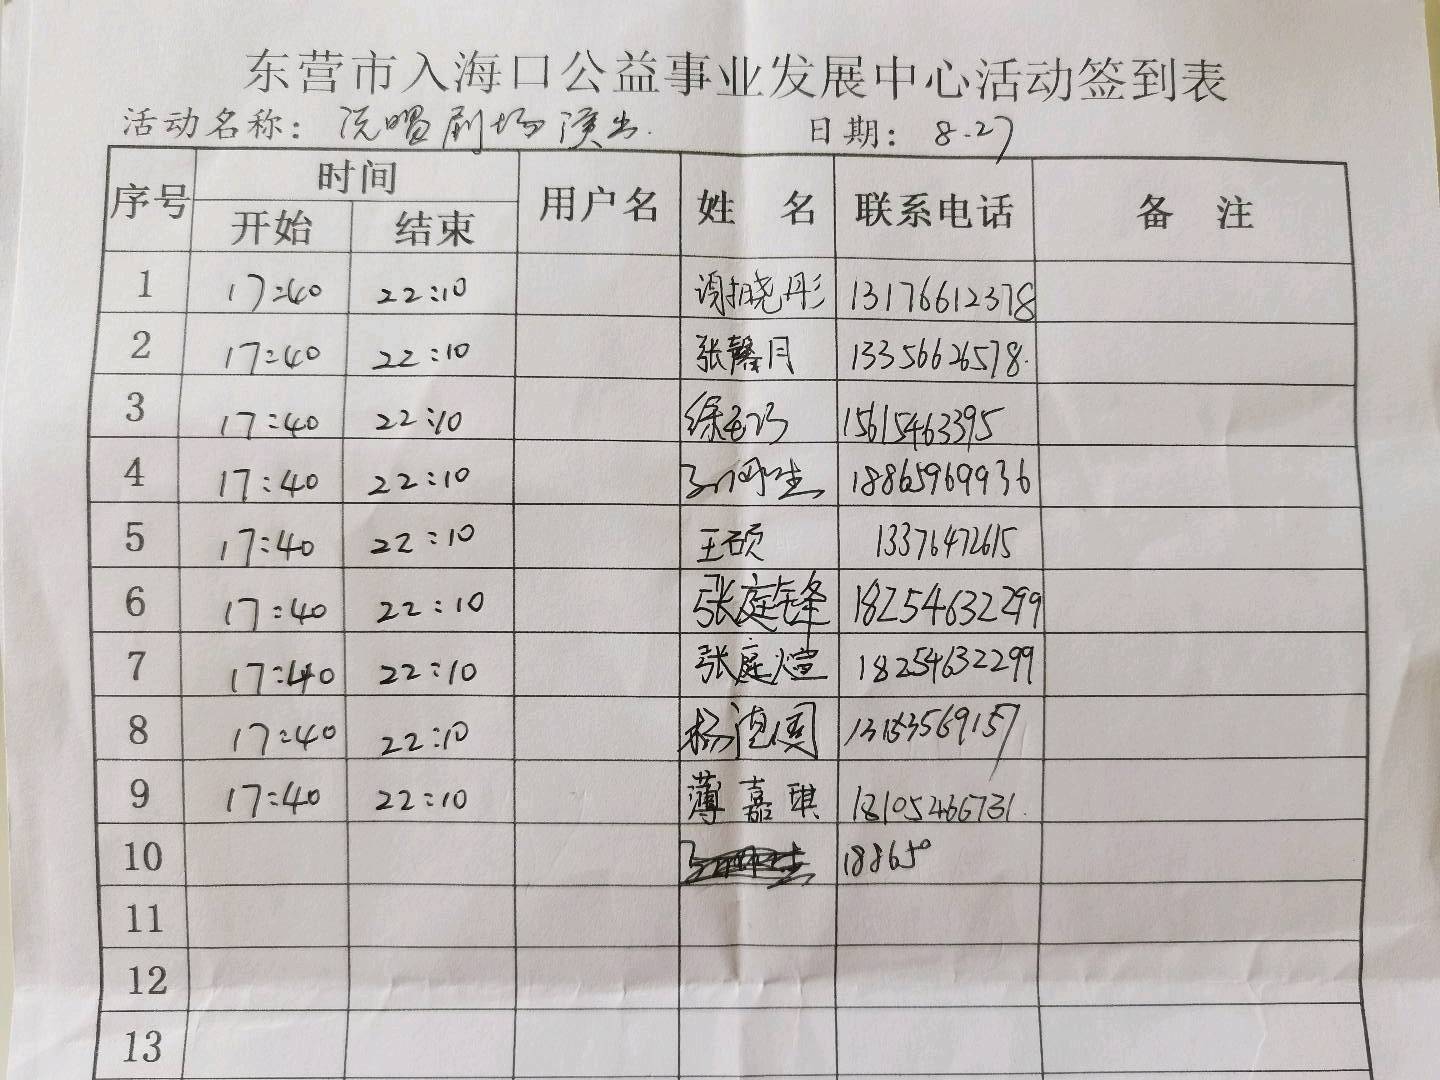 东营市入海口公益事业发展中心活动签到表
活动名称：说唱剧场演出. 日期：8-27
序号 时间 用户名 姓 名 联系电话 备 注
开始 结束
1 17:40 22:10 谢晓彤 13176612378
2 17:40 22:10 张馨月 13356626578.
3 17:40 22:10 徐 15615463395
4 17:40 22:10 18865969936
5 17:40 22:10 王硕 13376472615
6 17:40 22:10 张庭锋 18254632299
7 17:40 22:10 张庭煊 18254632299
8 17:40 22:10 杨 国
9 17:40 22:10 薄嘉琪 18105466731.
10 18865
11
12
13